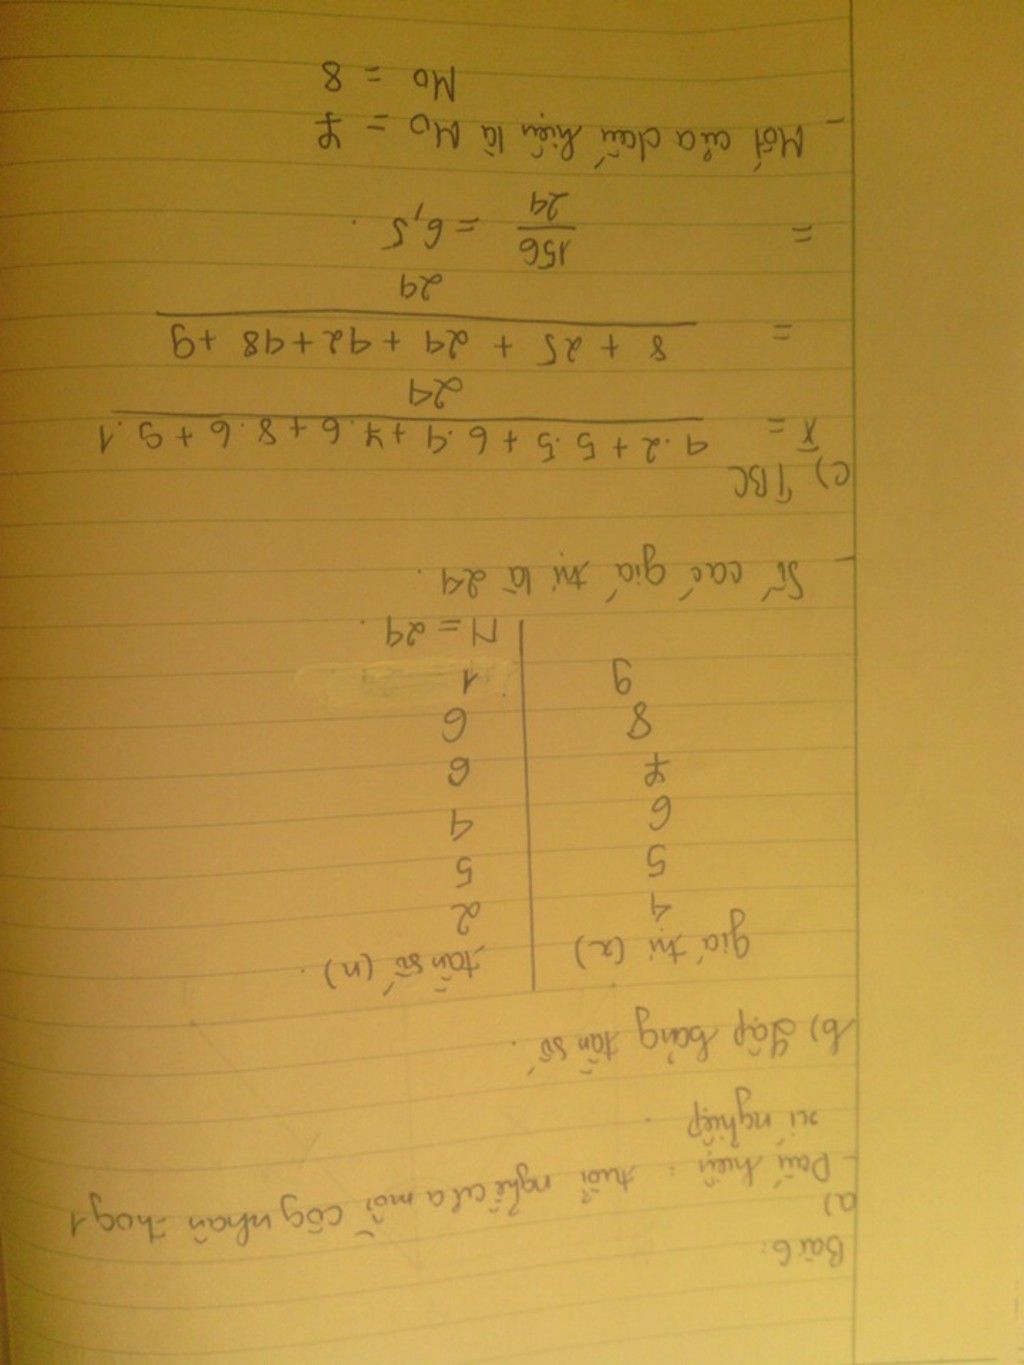 Bài 6:
a)
- Dấu hiệu : tuổi nghề của mỗi côg nhân thog 1
xí nghiệp .
b) Lập bảng tần số .
giá trị (x) tần số (n) .
4 2
5 5
6 4
7 6
8 6
9 1
N = 24 .
- Số các giá trị là 24 .
c) TBC
X̄ = 4.2 + 5.5 + 6.4 + 7.6 + 8.6 + 9.1
24
= 8 + 25 + 24 + 42 + 48 + 9
24
= 156 = 6,5 .
24
- Mốt của dấu hiệu là Mo = 7
Mo = 8